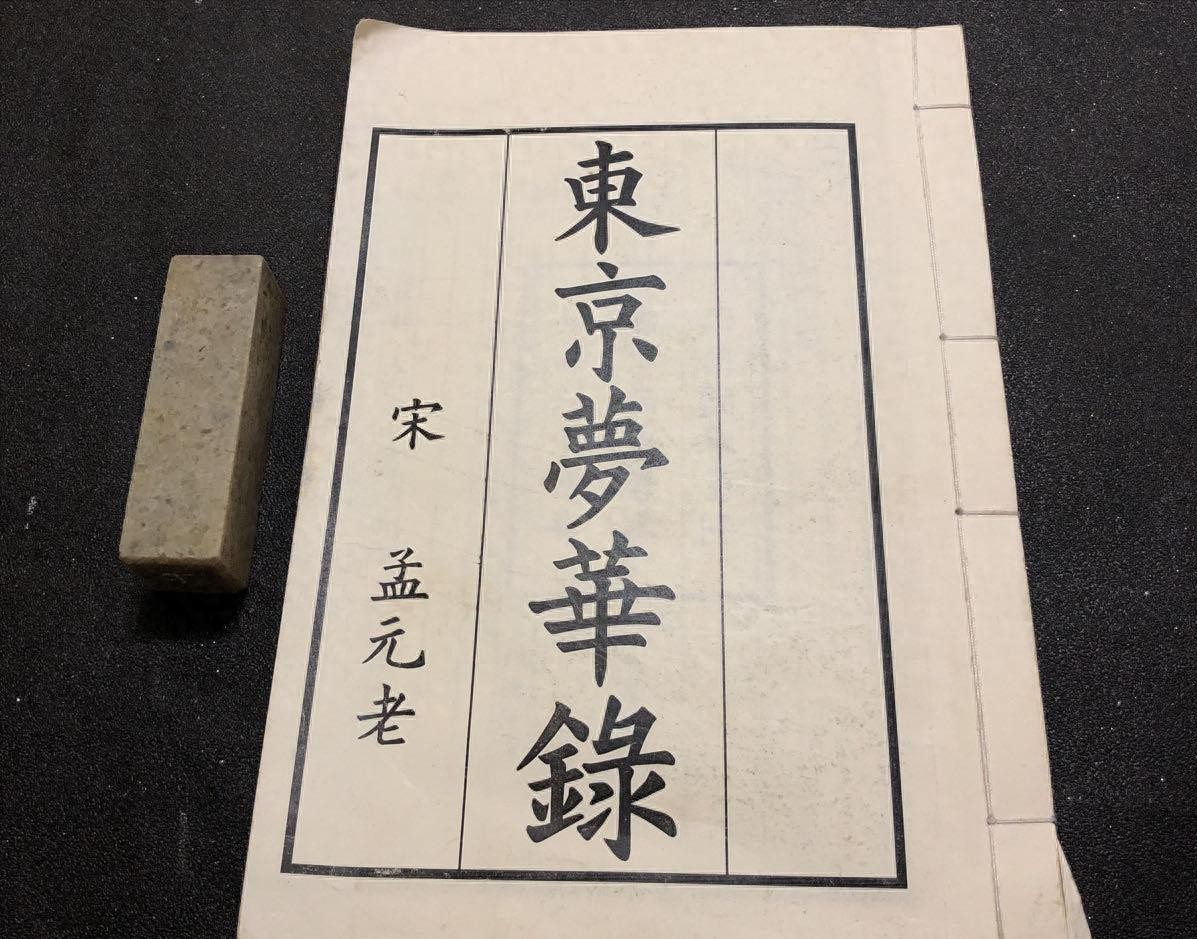 東京夢華錄
宋 孟元老